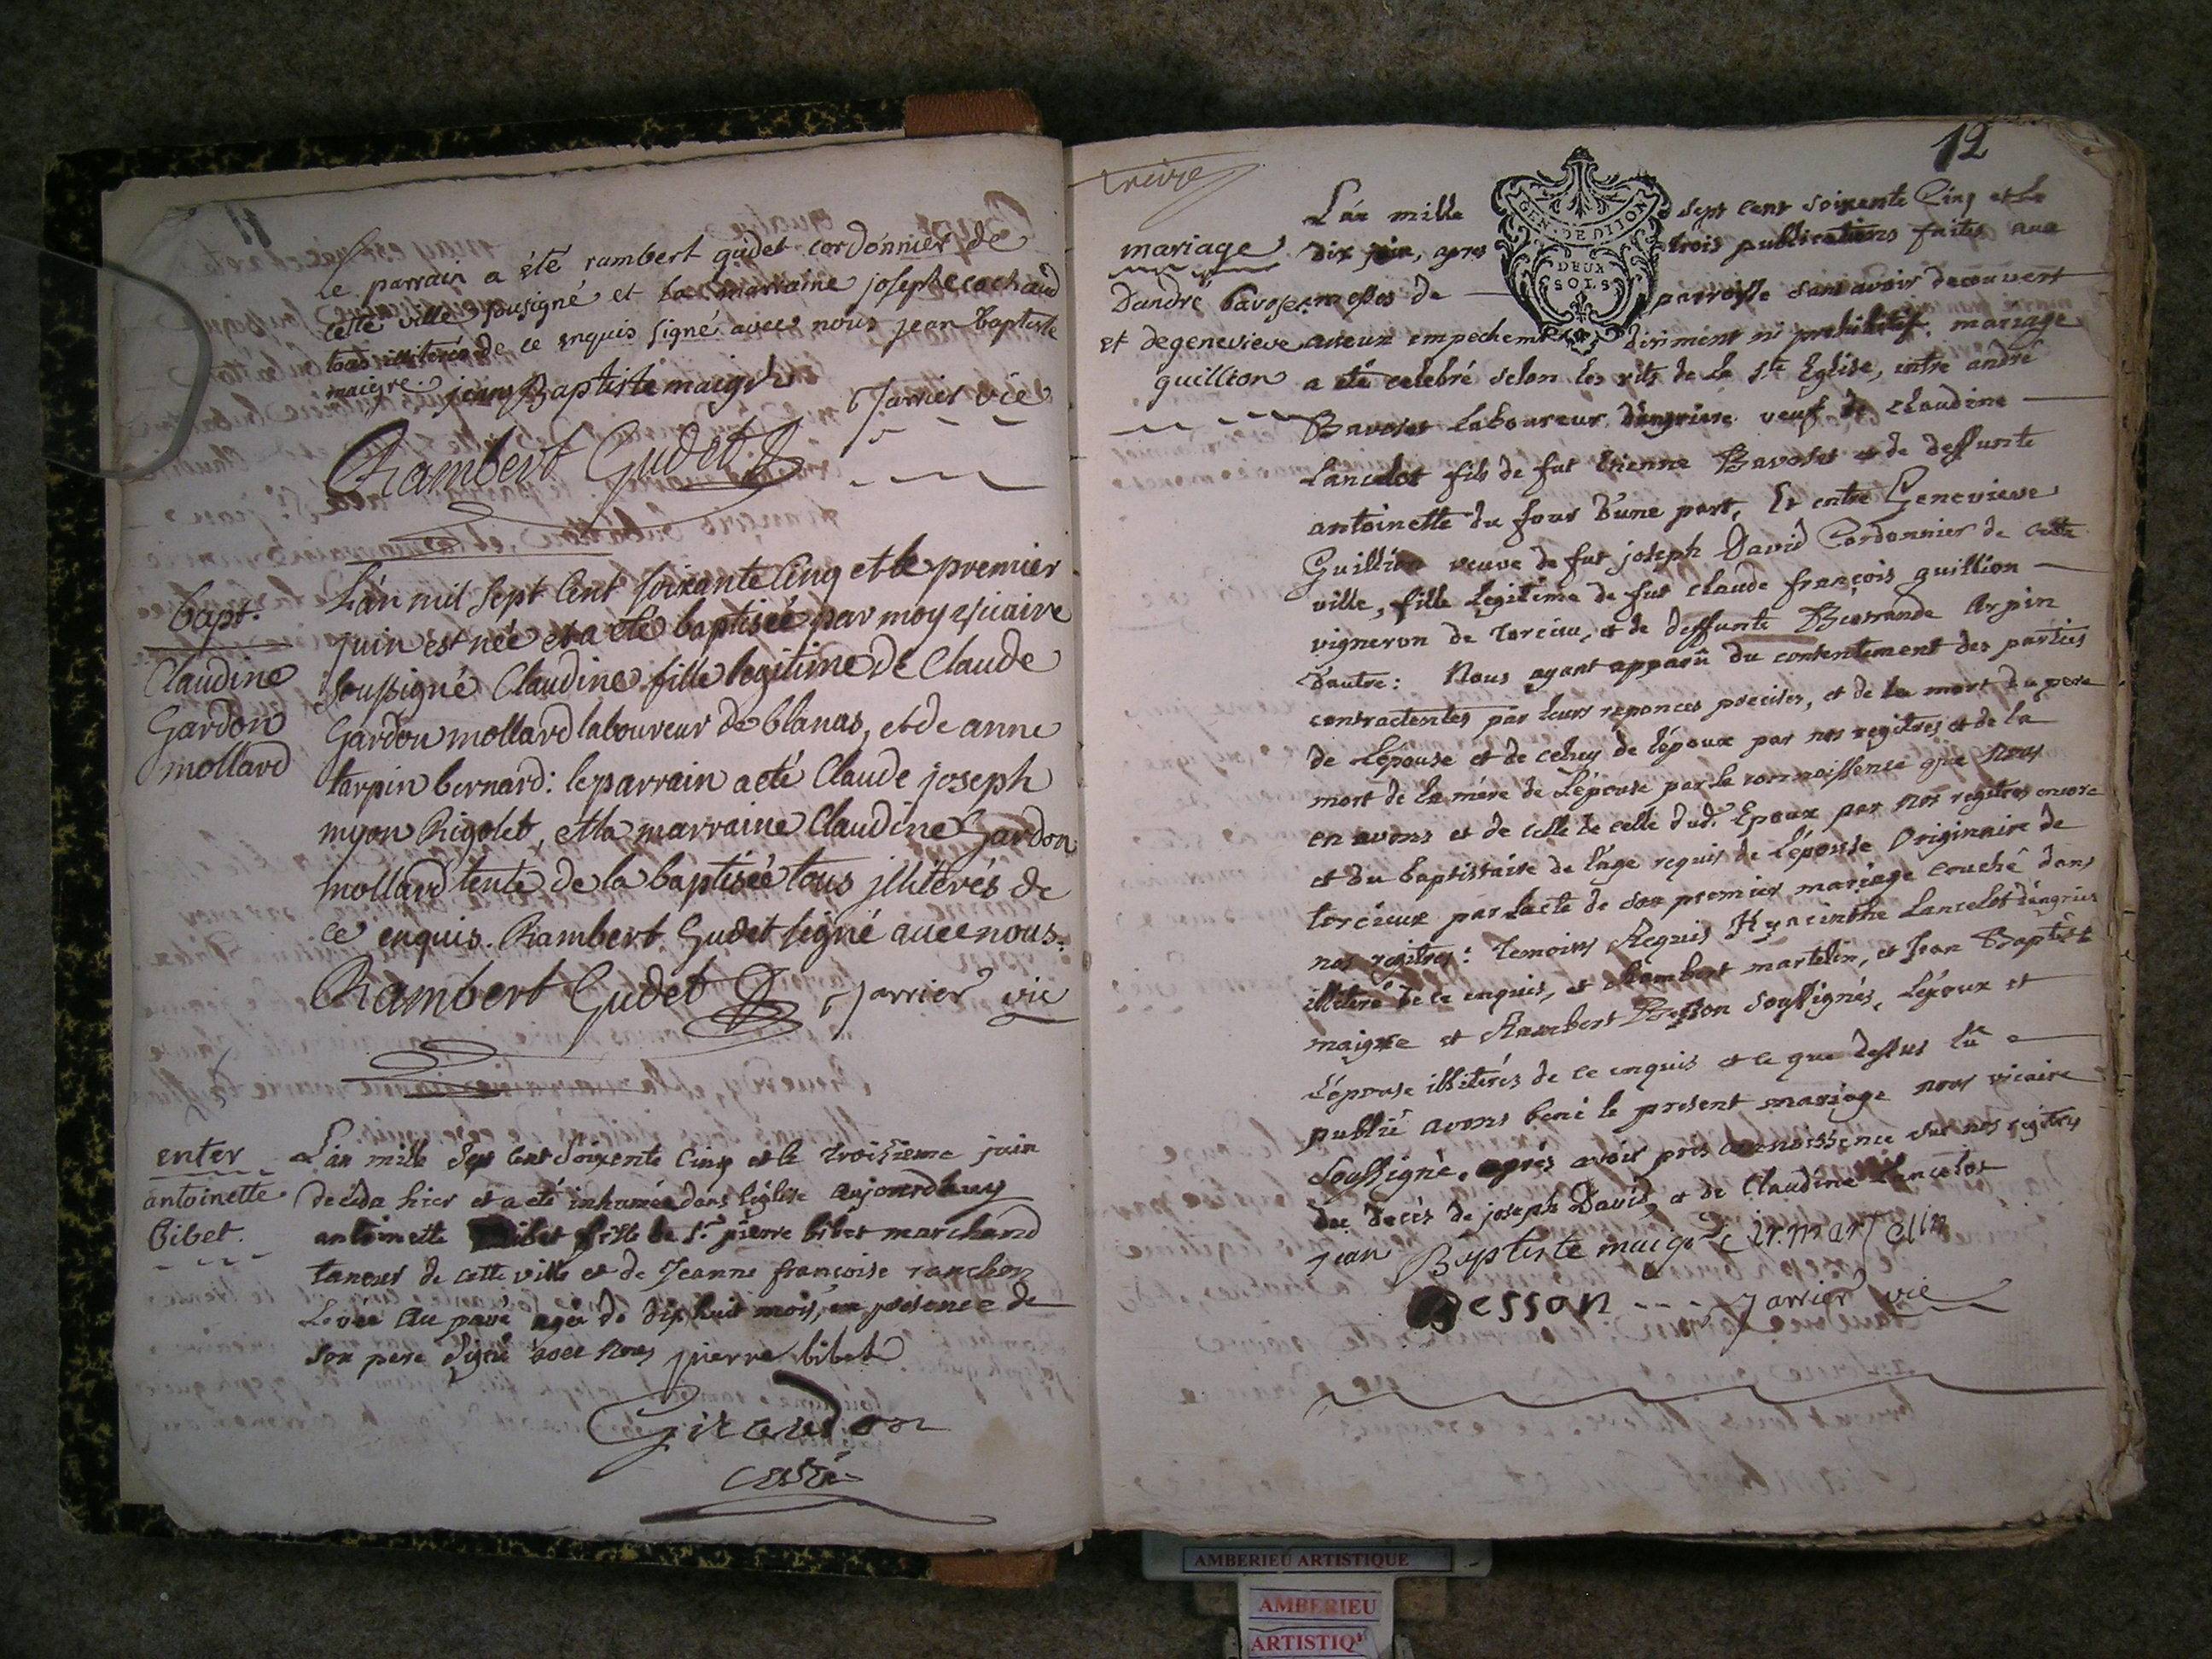 Le parrain a été rambert gudet cordonnier de
cette ville sousigné et la marraine josephe cochaud
tous illiterés de ce enquis signé avec nous jean baptiste
maigre. jean Baptiste maigre
Rambert Gudet jarrier vic
bapt.
Claudine
Gardon
mollard
L'an mil sept cent soixante cinq et le premier
juin est née et a été baptisée par moy vicaire
soussigné Claudine fille legitime de Claude
Gardon mollard laboureur de blanas, et de anne
tarpin bernard: le parrain a eté Claude joseph
myon Rigolet, et la marraine Claudine Gardon
mollard tente de la baptisée tous jllitérés de
ce enquis. Rambert Gudet signé avec nous.
Rambert Gudet jarrier vic
enter
antoinette
Bibet.
L'an mille sept cent soixente cinq et le troisieme juin
deceda hier et a été inhumée dans l'église aujourdhuy
antoinette bibet fille de Sr. pierre bibet marchand
taneur de cette ville et de Jeanne françoise ranchon
Levée au pavé agée de dix huit mois, en présence de
son pere signé avec nous pierre bibet
Giraudon
curé
12
mariage
D'andré bavoset
et de genevieve
guillion
L'an mille sept cent soixente Cinq et le
dix juin, apres trois publications faites aux
messes de parroisse sans avoir decouvert
aucun empechement diriment ni prohibitif. mariage
a été celebré selon les rits de la Ste Eglise, entre andré
Bavoset laboureur dangriere veuf de claudine
Lancelot fils de fut Etienne Bavoset et de deffunte
antoinette du four d'une part, Et entre Genevieve
Guillion veuve de fut joseph David Cordonnier de cette
ville, fille legitime de fut claude françois guillion
vigneron de torcieu, et de deffunte Bertrande Arpin
d'autre: Nous ayant apparû du contentement des parties
contractentes par leurs reponces precises, et de la mort du pere
de l'épouse et de celuy de l'époux par nos registres et de la
mort de la mére de l'épouse par la connoissence que nous
en avons et de celle de celle dud. Epoux par nos registres encore
et du baptistaire de l'age requis de l'épouse Originaire de
torcieux par lacte de son premier mariage couché dans
nos registres: temoins Requis Hyacinthe Lancelot dangrier
illiteré de ce enquis, et Rambert martelin, et Jean Baptiste
maigre et Rambert Besson soussignés, l'époux et
l'épouse illiterés de ce enquis et ce que dessus lû e
publié avons beni le present mariage nous vicaire
soussigné. aprés avoir pris connoissence sur nos registres
du decés de joseph David, et de Claudine Lancelot
jean Baptiste maigre r. martelin
Besson jarrier vic
GEN. DE DIJON
DEUX
SOLS
AMBERIEU ARTISTIQUE
AMBERIEU
ARTISTIQ